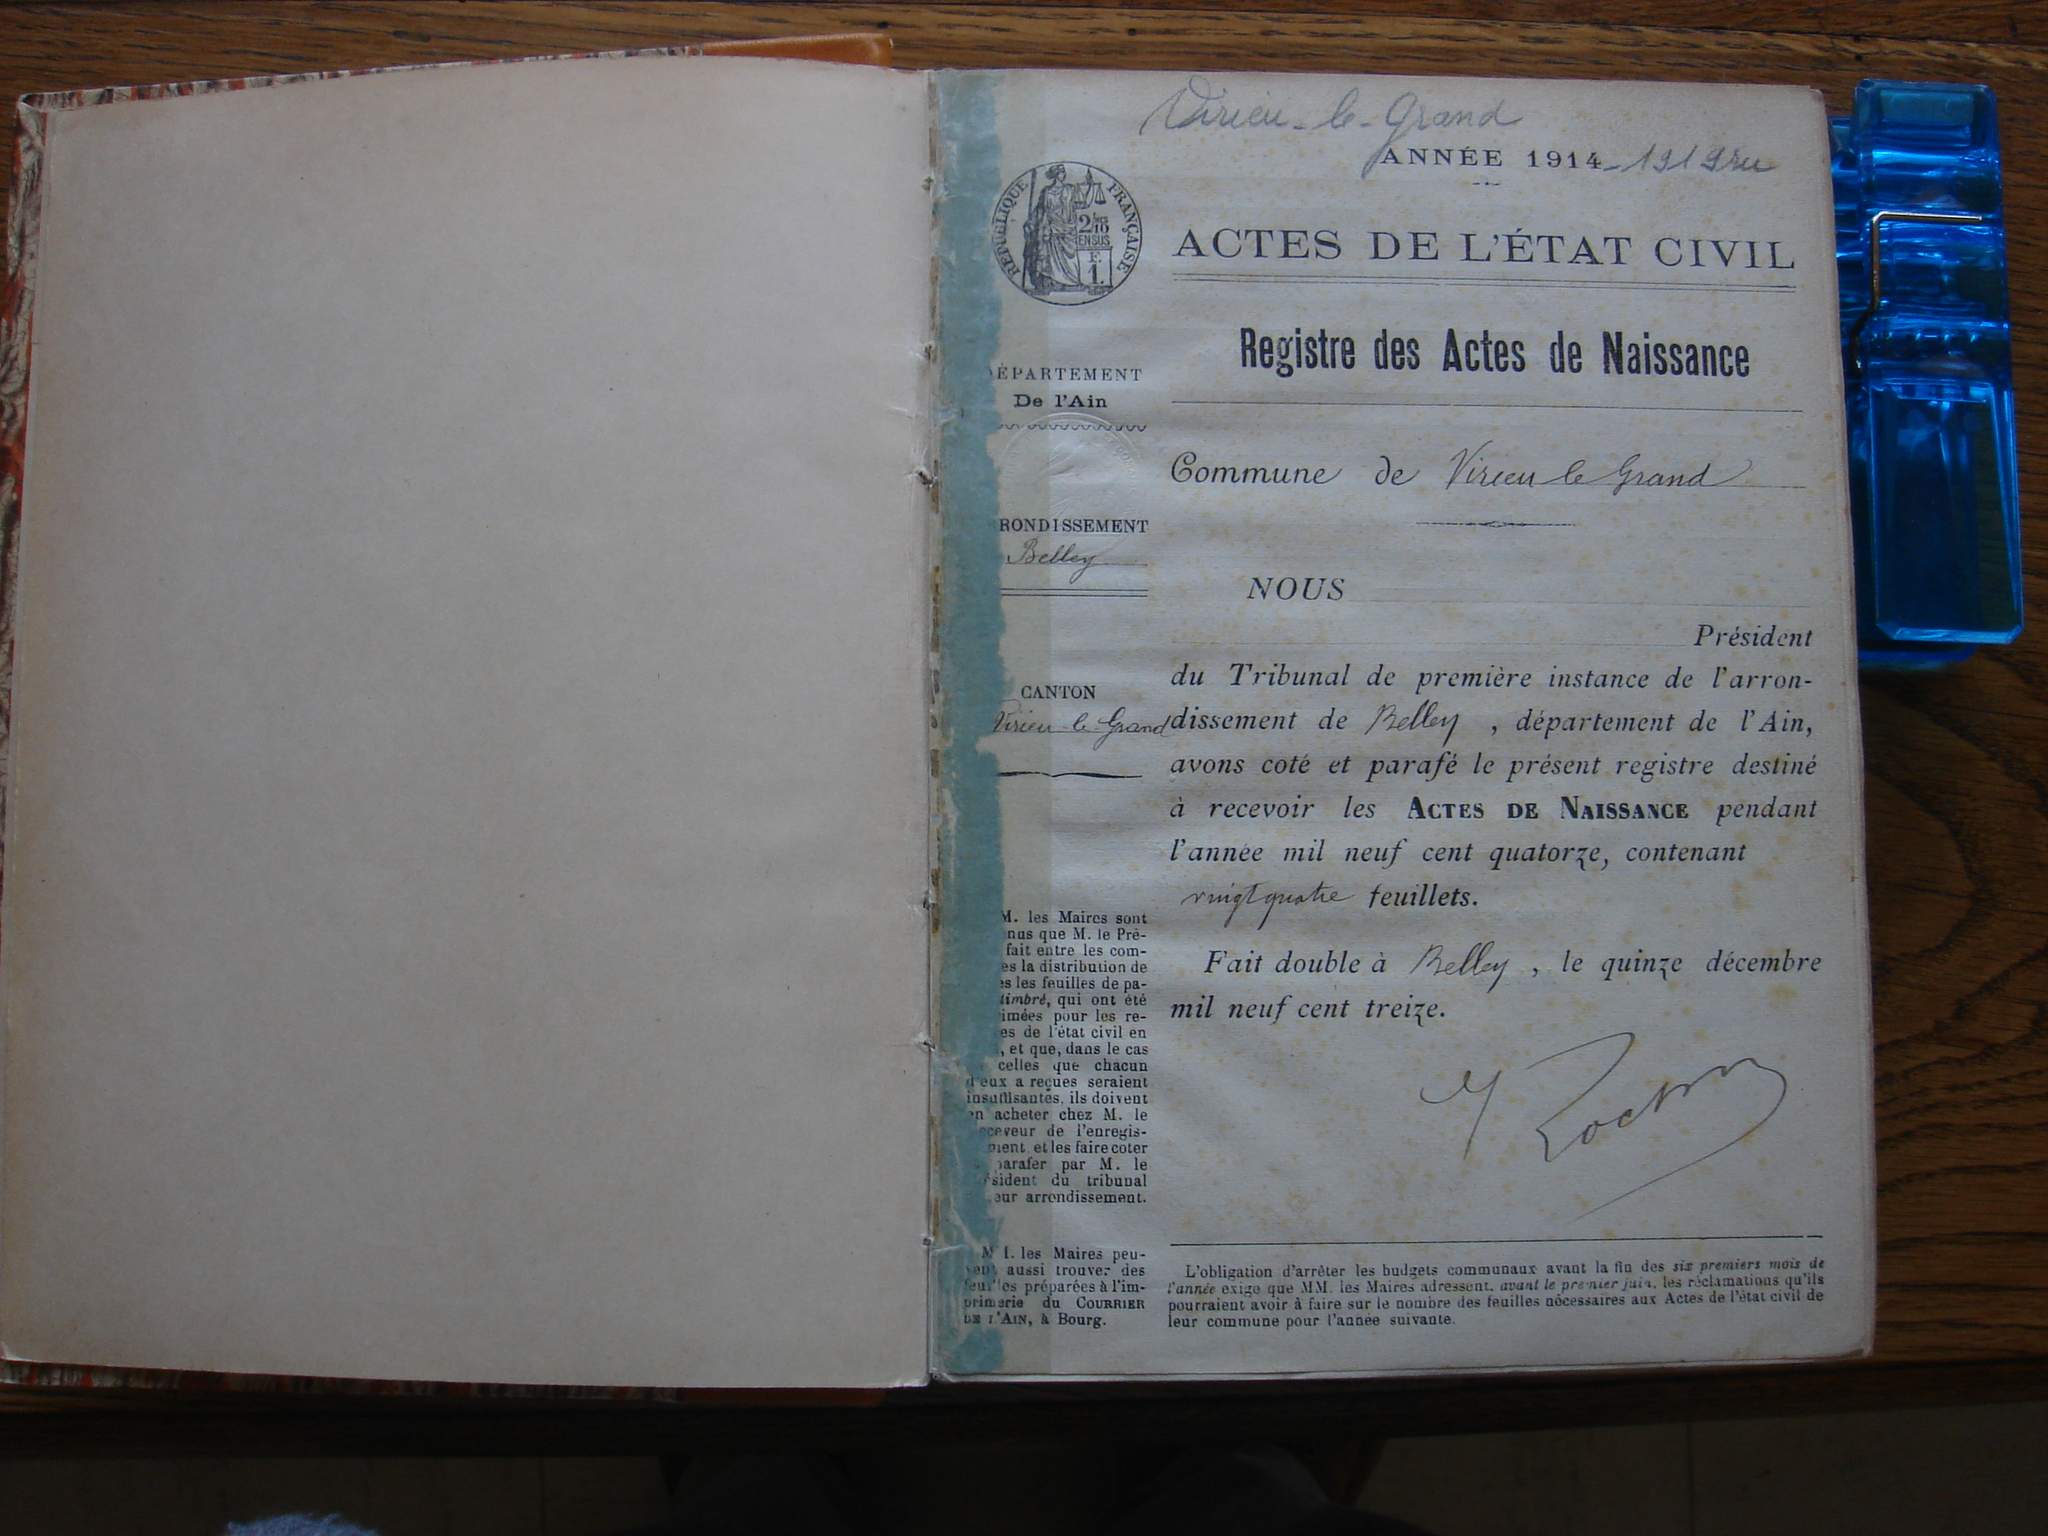 Virieu-le-Grand
ANNÉE 1914-1919
RÉPUBLIQUE FRANÇAISE
2/10
EN SUS
F.
1.
ACTES DE L'ÉTAT CIVIL
Registre des Actes de Naissance
ÉPARTEMENT
De l'Ain
RONDISSEMENT
Belley
CANTON
Virieu-le-Grand
M. les Maires sont
nus que M. le Pré-
fait entre les com-
es la distribution de
es les feuilles de pa-
timbré, qui ont été
imées pour les re-
es de l'état civil en
, et que, dans le cas
celles que chacun
d'eux a reçues seraient
insuffisantes, ils doivent
en acheter chez M. le
ceveur de l'enregis-
ment et les faire coter
parafer par M. le
ésident du tribunal
eur arrondissement.
M. les Maires peu-
vent aussi trouver des
feuilles préparées à l'im-
primerie du COURRIER
DE L'AIN, à Bourg.
Commune de Virieu le Grand
NOUS
Président
du Tribunal de première instance de l'arron-
dissement de Belley, département de l'Ain,
avons coté et parafé le présent registre destiné
à recevoir les ACTES DE NAISSANCE pendant
l'année mil neuf cent quatorze, contenant
vingt quatre feuillets.
Fait double à Belley, le quinze décembre
mil neuf cent treize.
L'obligation d'arrêter les budgets communaux avant la fin des six premiers mois de
l'année exige que MM. les Maires adressent, avant le premier juin, les réclamations qu'ils
pourraient avoir à faire sur le nombre des feuilles nécessaires aux Actes de l'état civil de
leur commune pour l'année suivante.